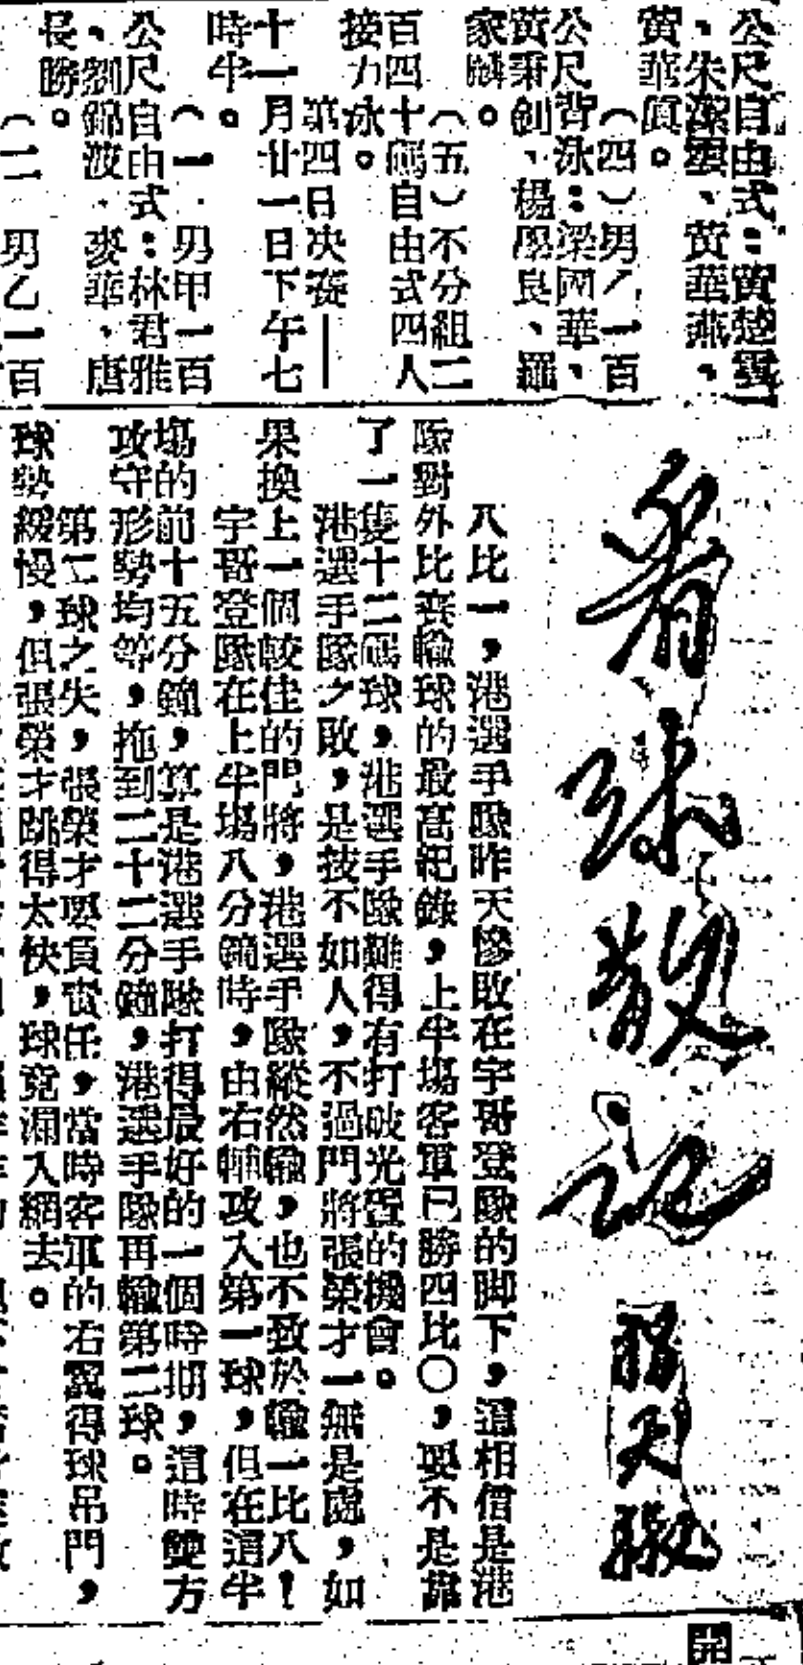 公尺自由式：黃楚雲
、朱潔雲、黃華燕、
黃華貞。
（四）男乙一百
公尺背泳：梁國華、
黃秉釗、楊學良、羅
家麟。
（五）不分組二
百四十碼自由式四人
接力泳。
第四日决賽——
十一月廿一日下午七
時半。
（一）男甲一百
公尺自由式：林君雅
、劉錦波、麥華、唐
長勝。
（二 男乙一百
看球散記
八比一，港選手隊昨天慘敗在宇哥登隊的脚下，這相信是港
隊對外比賽輸球的最高紀錄，上半場客軍已勝四比〇，要不是靠
了一隻十二碼球，港選手隊難得有打破光蛋的機會。
港選手隊之敗，是技不如人，不過門將張榮才一無是處，如
果換上一個較佳的門將，港選手隊縱然輸，也不致於輸一比八！
宇哥登隊在上半場八分鐘時，由右輔攻入第一球，但在這半
塲的前十五分鐘，算是港選手隊打得最好的一個時期，這時雙方
攻守形勢均等，拖到二十二分鐘，港選手隊再輸第二球。
第二球之失，張榮才要負責任，當時客軍的右翼得球吊門，
球勢緩慢，但張榮才跳得太快，球竟漏入網去。